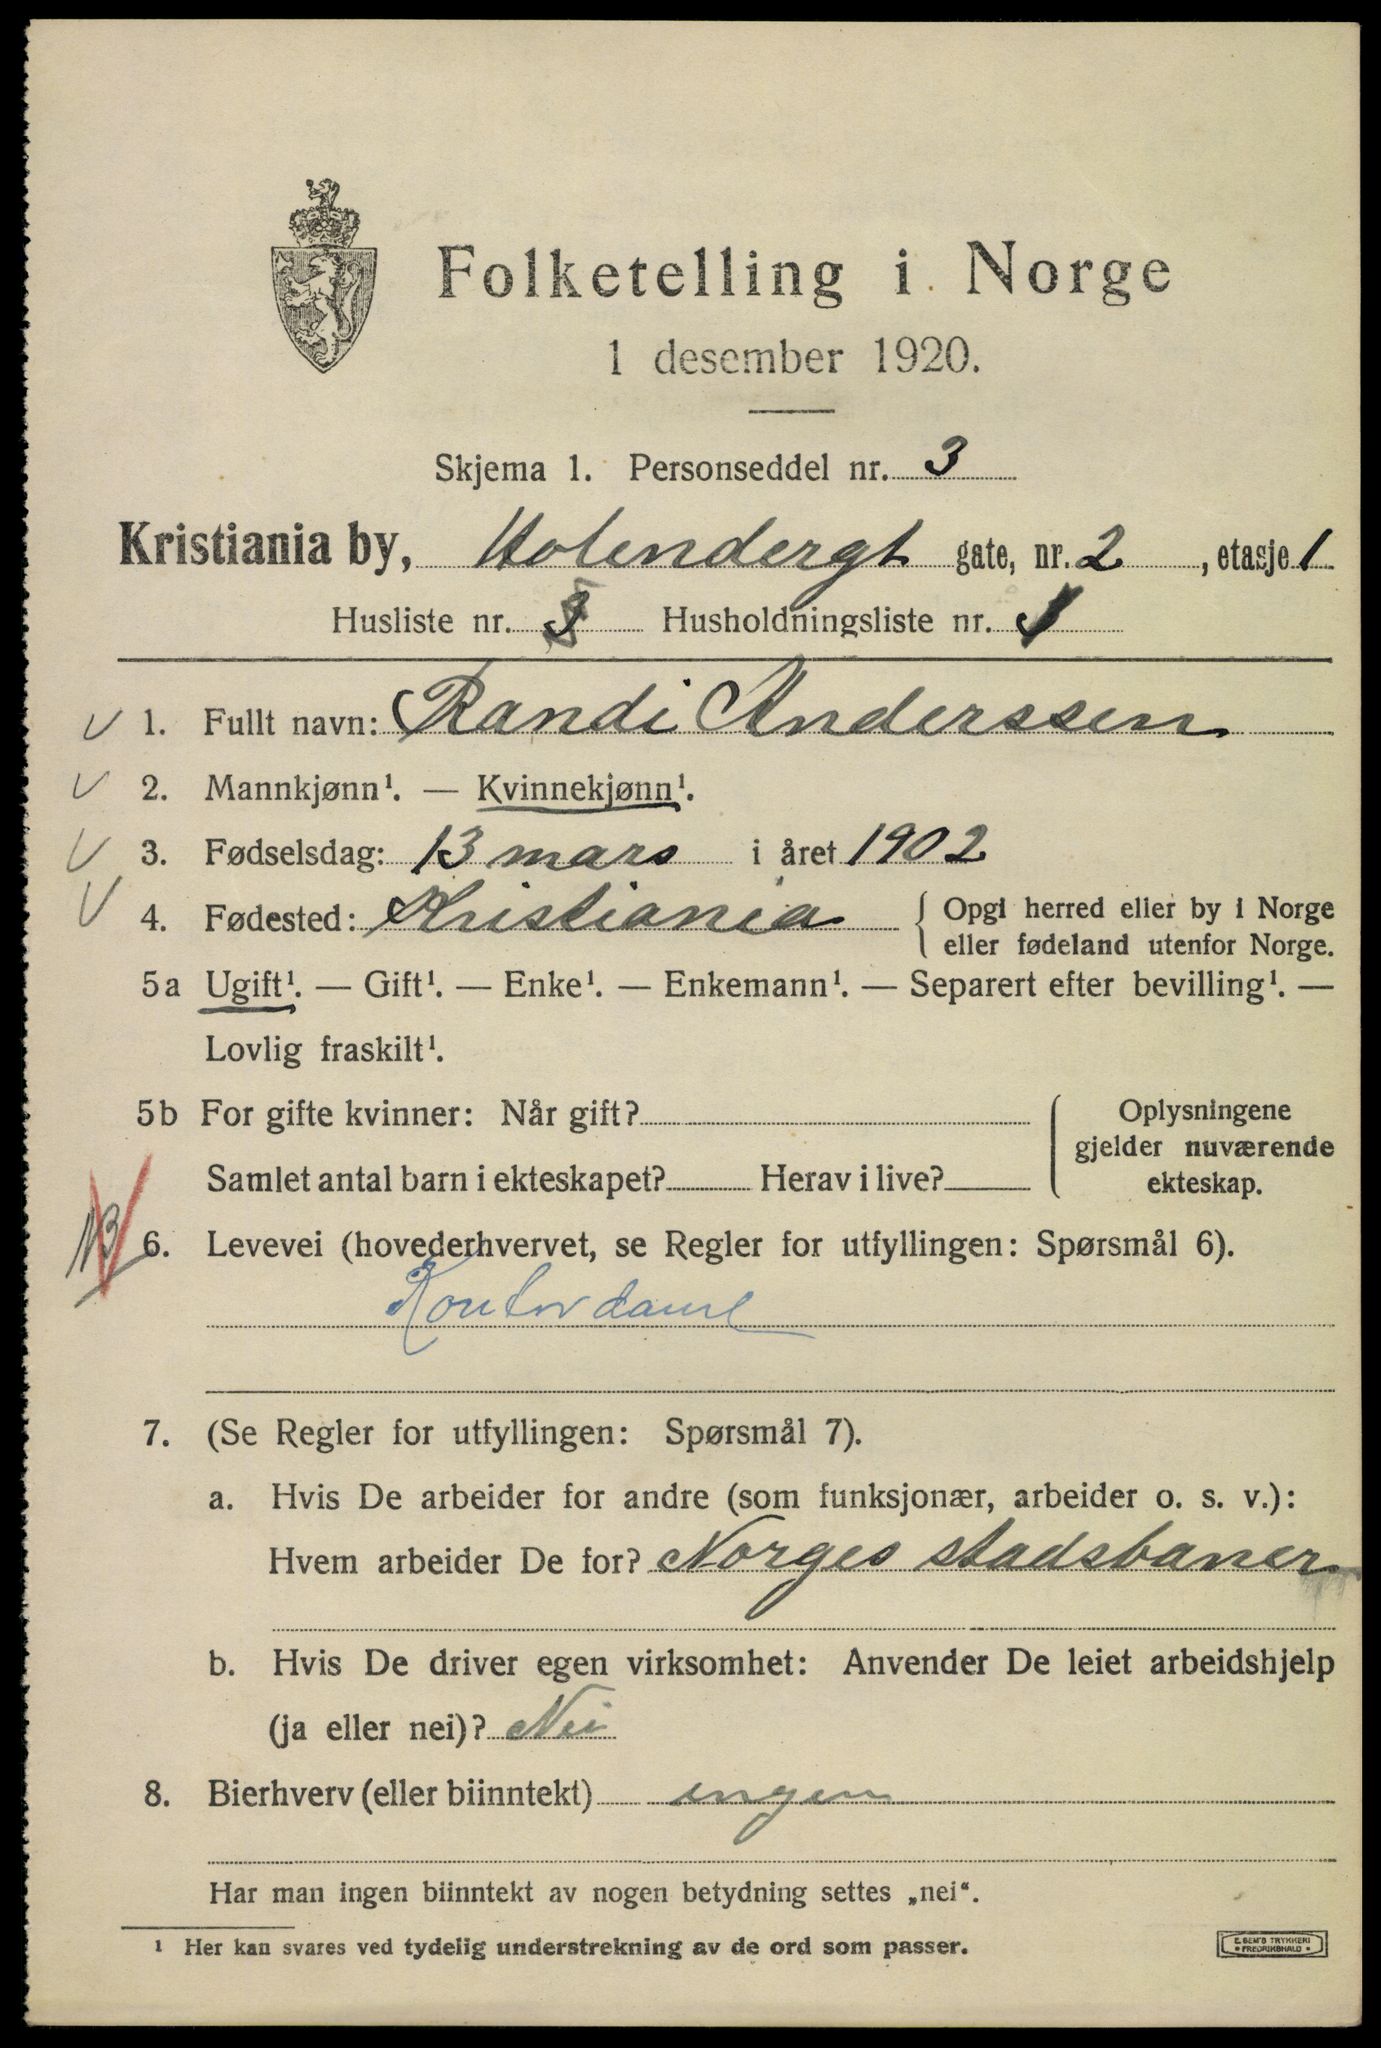 Folketelling i Norge
1 desember 1920.
Skjema 1. Personseddel nr. 3
Kristiania by, Holendergt gate, nr. 2, etasje 1
Husliste nr. 3 Husholdningsliste nr. 1
1. Fullt navn: Randi Anderssen
2. Mannkjønn¹. — Kvinnekjønn¹.
3. Fødselsdag: 13 mars i året 1902
4. Fødested: Kristiania { Opgi herred eller by i Norge
eller fødeland utenfor Norge.
5a Ugift¹. — Gift¹. — Enke¹. — Enkemann¹. — Separert efter bevilling¹. —
Lovlig fraskilt¹.
5b For gifte kvinner: Når gift?
Samlet antal barn i ekteskapet? Herav i live?
Oplysningene
gjelder nuværende
ekteskap.
NB 6. Levevei (hovederhvervet, se Regler for utfyllingen: Spørsmål 6).
Kontordame
7. (Se Regler for utfyllingen: Spørsmål 7).
a. Hvis De arbeider for andre (som funksjonær, arbeider o. s. v.):
Hvem arbeider De for? Norges stadsbaner
b. Hvis De driver egen virksomhet: Anvender De leiet arbeidshjelp
(ja eller nei)? Nei
8. Bierhverv (eller biinntekt) ingen
Har man ingen biinntekt av nogen betydning settes „nei“.
¹ Her kan svares ved tydelig understrekning av de ord som passer.
E. SEM'S TRYKKERI
• FREDRIKSHALD •